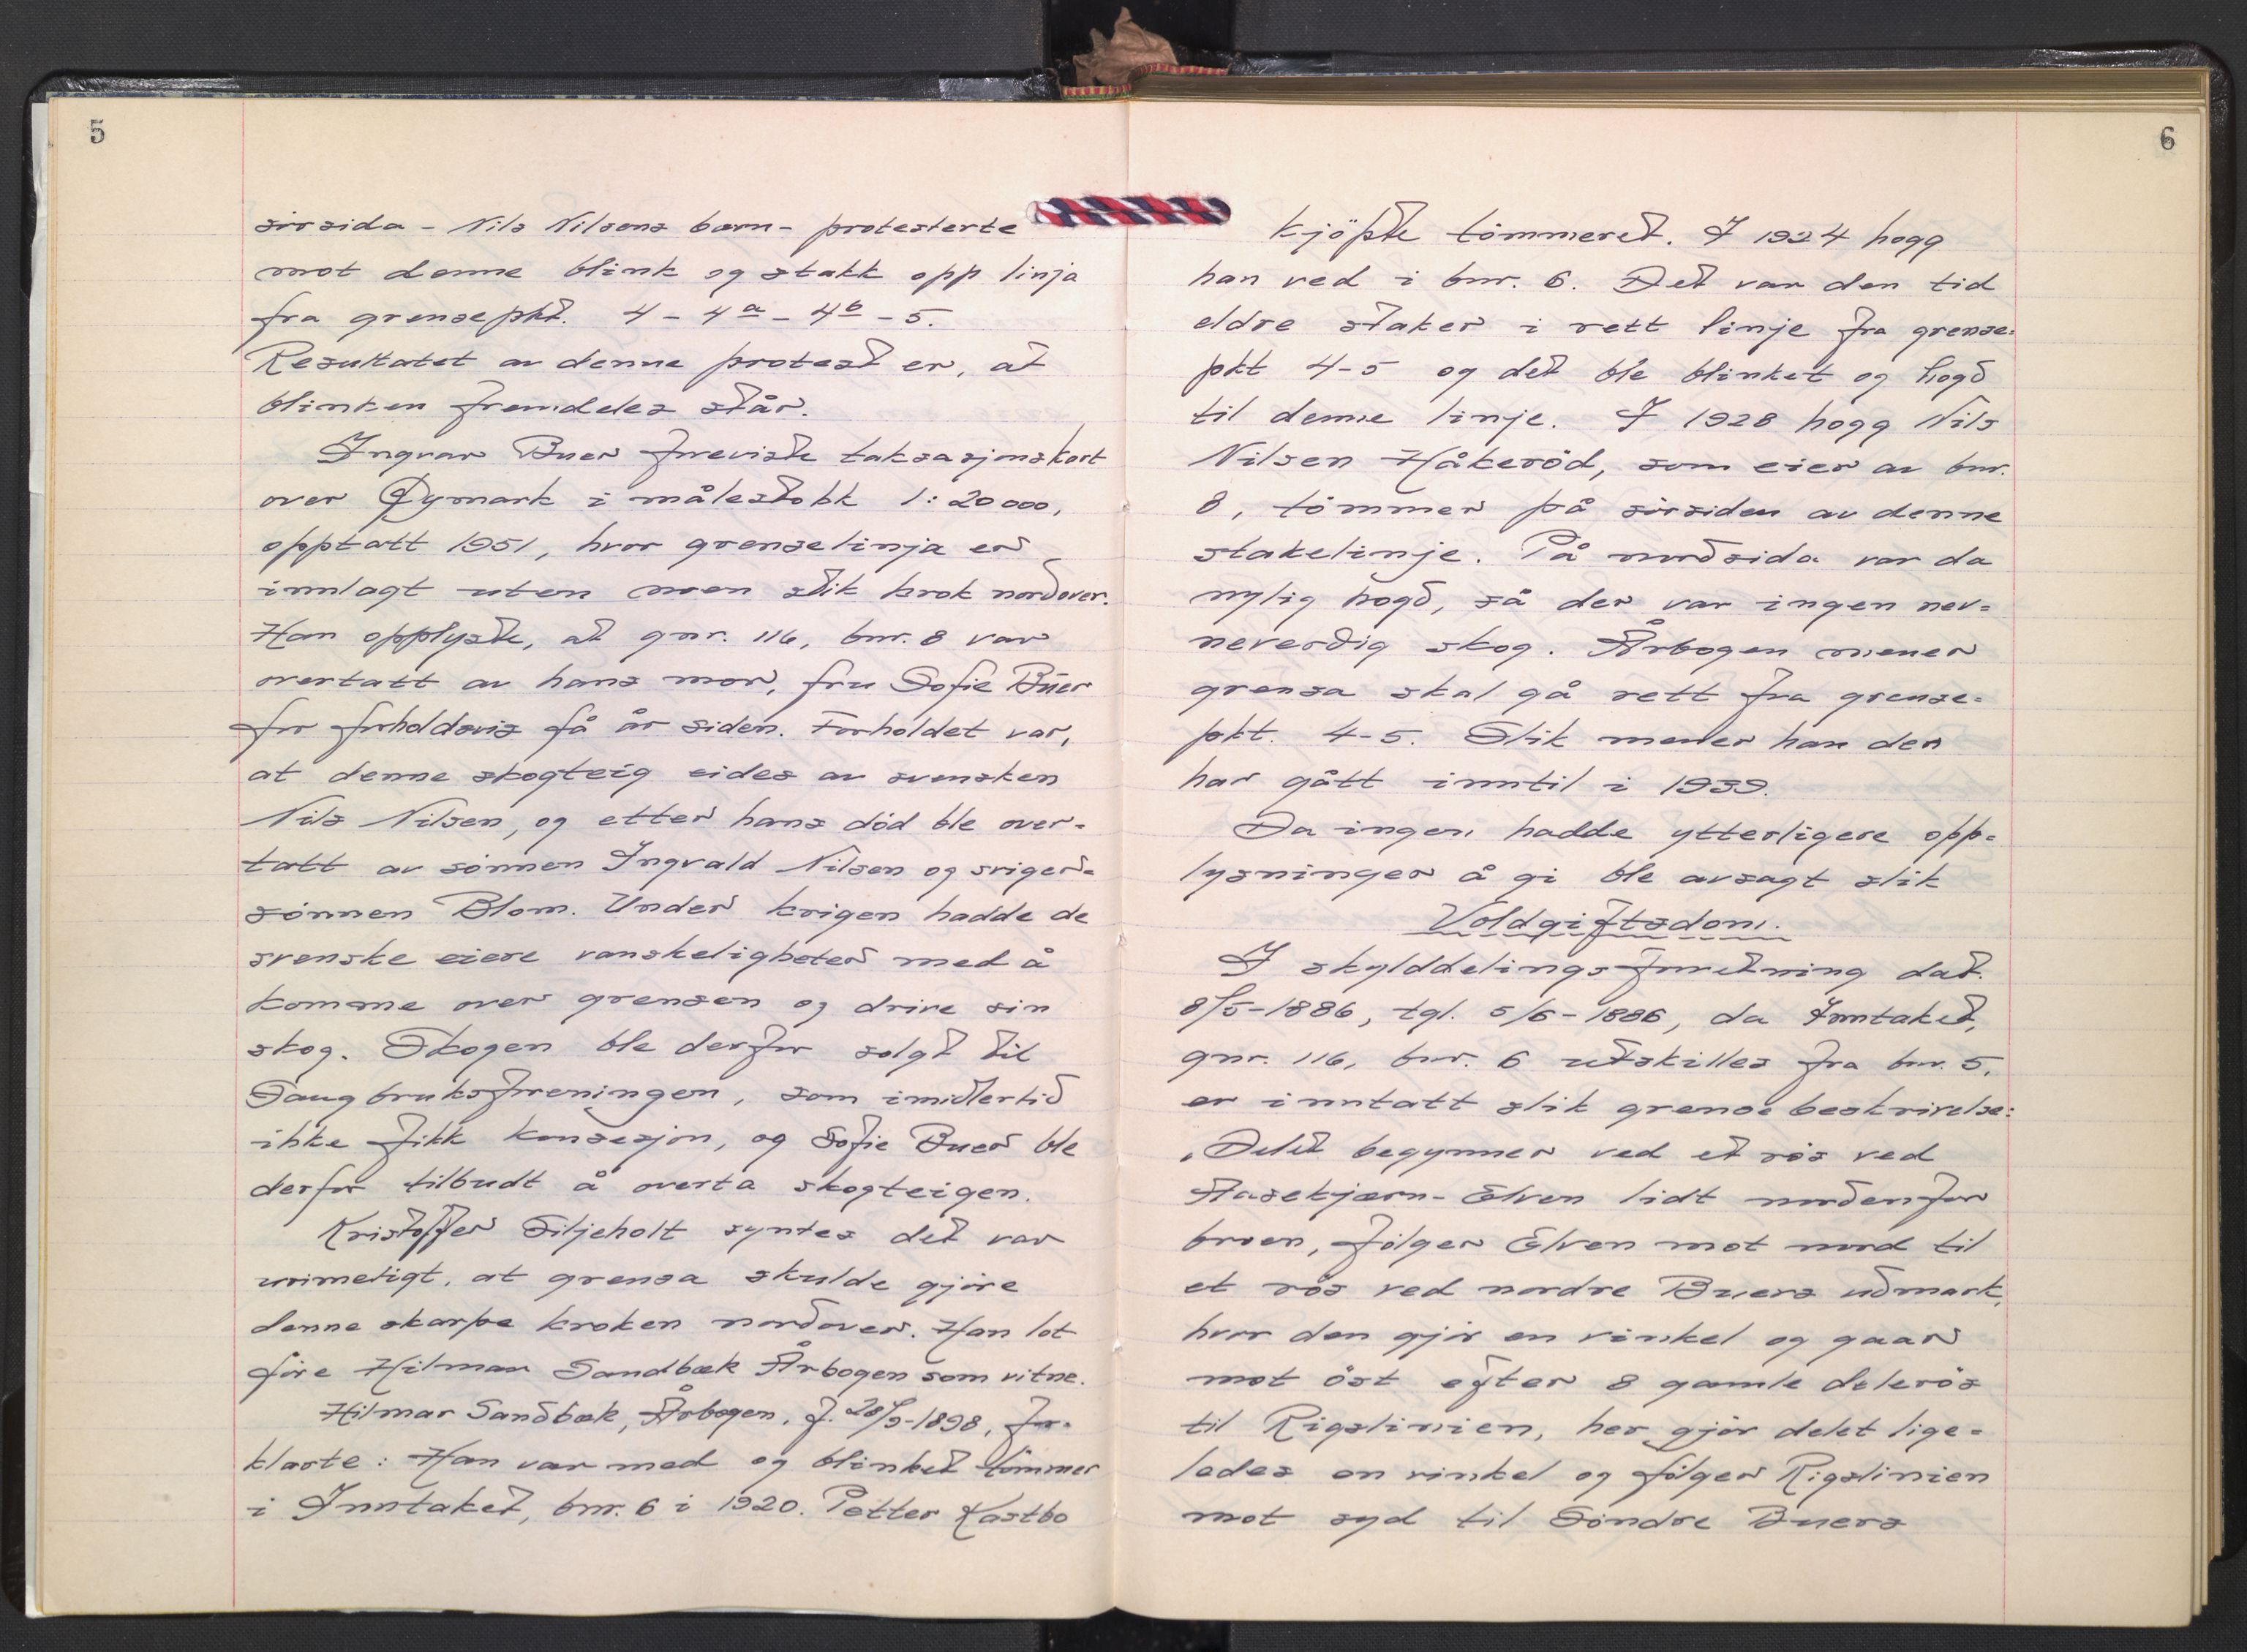 5
sørsida - Nils Nilsens barn - protesterte
mot denne blink og stakk opp linja
fra grensepkt. 4 - 4a - 4b - 5.
Resultatet av denne protest er, at
blinken fremdeles står.
Ingvar Buer foreviste taksasjonskart
over Øymark i målestokk 1:20000,
opptatt 1951, hvor grenselinja er
innlagt uten noen slik krok nordover.
Han opplyste, at gnr. 116, bnr. 8 var
overtatt av hans mor, fru Sofie Buer
for forholdsvis få år siden. Forholdet var,
at denne skogteig eides av svensken
Nils Nilsen, og etter hans död ble over=
tatt av sönnen Ingvald Nilsen og sviger=
sönnen Blom. Under krigen hadde de
svenske eiere vanskeligheter med å
komme over grensen og drive sin
skog. Skogen ble derfor solgt til
Saugbruksforeningen, som imidlertid
ikke fikk konsesjon, og Sofie Buer ble
derfor tilbudt å overta skogteigen.
Kristoffer Siljeholt syntes det var
urimeligt, at grensa skulde gjøre
denne skarpe kroken nordover. Han lot
føre Hilmar Sandbæk Årbogen som vitne.
Hilmar Sandbæk, Årbogen, f. 28/9-1898, for=
klarte: Han var med og blinket tömmer
i Inntaket, bnr. 6 i 1920. Petter Kastbo
6
kjöpte tömmeret. I 1924 hogg
han ved i bnr. 6. Det var den tid
eldre staker i rett linje fra grense=
pkt 4-5 og det ble blinket og hogd
til denne linje. I 1928 hogg Nils
Nilsen Håkeröd, som eier av bnr.
8, tömmer på sørsiden av denne
stakelinje. På nordsida var da
nylig hogd, så der var ingen nev=
neverdig skog. Årbogen mener
grensa skal gå rett fra grense=
pkt. 4-5. Slik mener han den
har gått inntil i 1939.
Da ingen hadde ytterligere opp=
lysninger å gi ble avsagt slik
Voldgiftsdom.
I skylddelingsforretning dat.
8/5-1886, tgl. 5/6-1886, da Inntaket,
gnr. 116, bnr. 6 utskilles fra bnr. 5,
er inntatt slik grensebeskrivelse:
"Delet begynner ved et rös ved
Aasekjærn-Elven lidt nordenfor
broen, fölger Elven mot nord til
et rös ved nordre Buers udmark,
hvor den gjör en vinkel og gaar
mot öst efter 8 gamle delerös
til Rigslinien, her gjör delet lige=
ledes en vinkel og fölger Rigslinien
mot syd til Søndre Buers